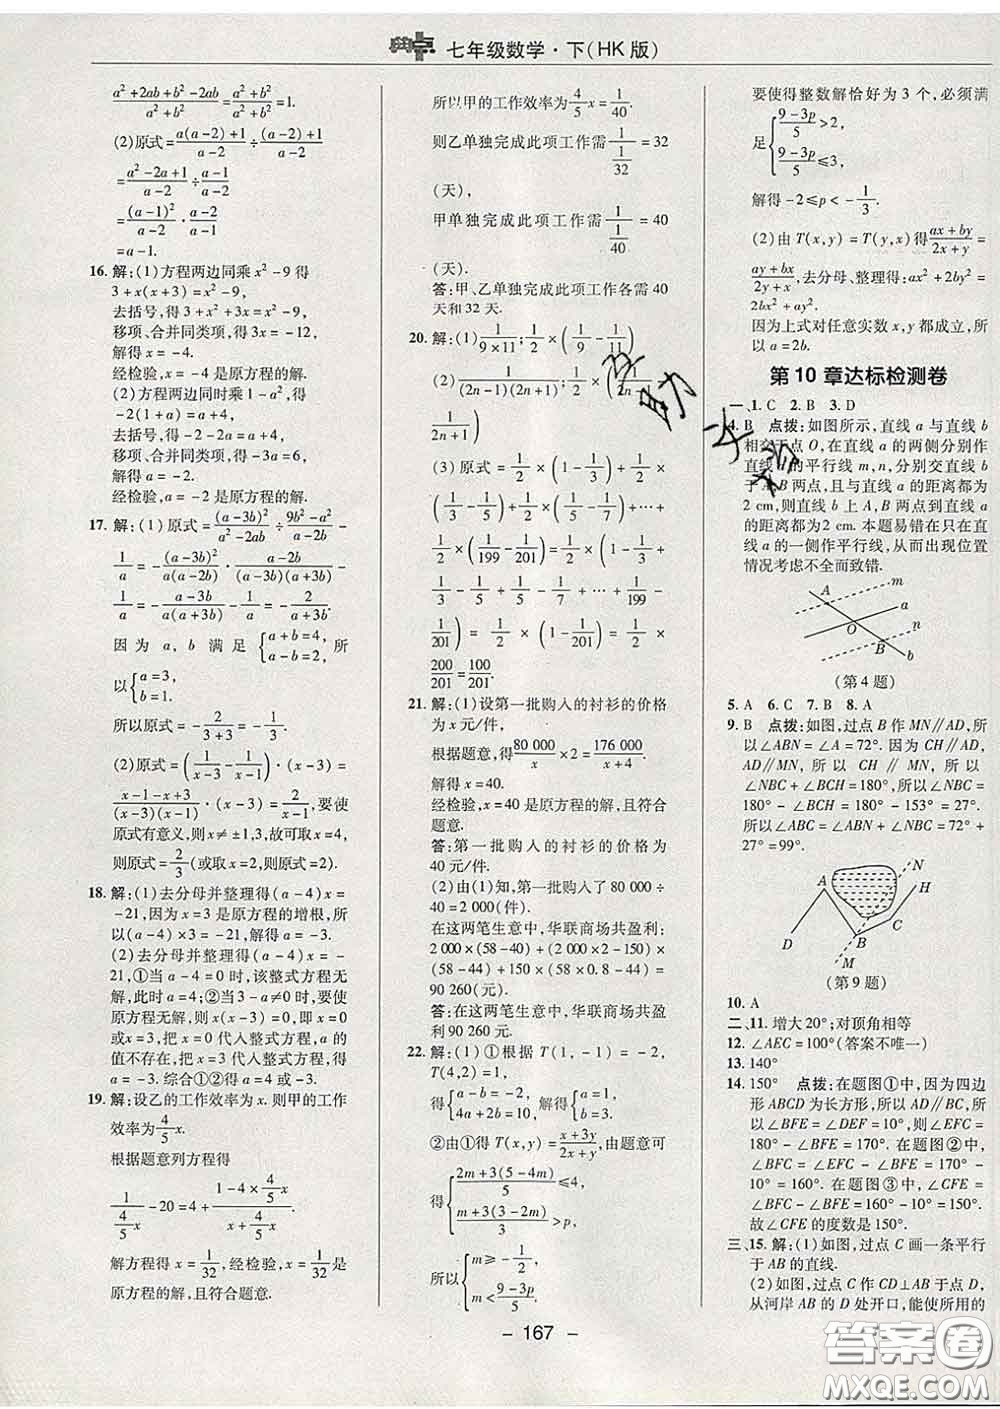 典中点 七年级数学·下(HK版)
(a²+2ab+b²-2ab)/(a²+b²)=(a²+b²)/(a²+b²)=1.
(2)原式=(a(a-2)+1)/(a-2)÷((a-2)+1)/(a-2)
=(a²-2a+1)/(a-2)÷(a-1)/(a-2)
=(a-1)²/(a-2)·(a-2)/(a-1)
=a-1.
16. 解:(1)方程两边同乘 x²-9得
3+x(x+3)=x²-9,
去括号,得3+x²+3x=x²-9,
移项、合并同类项,得3x=-12,
解得x=-4.
经检验,x=-4是原方程的解.
(2)方程两边同乘2(3a-1),得
-2+1(3a-1)=
去括号,得
移项、合并同类项,得-3a=6,
解得a=-2.
经检验,a=-2是原方程的解.
17. 解:(1)原式=(a-3b)²/(a²-2ab)÷(9b²-a²)/(a-2b)-
1/a=-(a-3b)²/(a(a-2b))·(a-2b)/((a-3b)(a+3b))-
1/a=-(a-3b)/(a(a+3b))-1/a=-2/(a+3b).
因为a,b满足{a+b=4, a-b=2, 所
以{a=3, b=1.
所以原式=-2/(3+3)=-1/3.
(2)原式=(1/(x-3)-1/(x-1))·(x-3)=
(x-1-x+3)/((x-3)(x-1))·(x-3)=2/(x-1),要使
原式有意义,则x≠±1,3,故可取x=4,
则原式=2/3(或取x=2,则原式=2).
18. 解:(1)去分母并整理得(a-4)x=
-21,因为x=3是原方程的增根,所
以(a-4)×3=-21,解得a=-3.
(2)去分母并整理得(a-4)x=-
21,①当a-4=0时,该整式方程无
解,此时a=4;②当3-a≠0时,要使
原方程无解,则x(x-3)=0,即x=0
或x=3,把x=0代入整式方程,a的
值不存在,把x=3代入整式方程,得
a=-3.综合①②得a=4或a=-3.
19. 解:设乙的工作效率为x.则甲的工作
效率为4/5x.
根据题意列方程得
1/(4/5x)-20=4+(1-4×4/5x)/(x+4/5x)
解方程得x=1/32,经检验,x=1/32是
原方程的解,且符合题意.
所以甲的工作效率为4/5x=1/40.
则乙单独完成此项工作需1/(1/32)=32
(天),
甲单独完成此项工作需1/(1/40)=40
(天).
答:甲、乙单独完成此项工作各需40
天和32天.
20. 解:(1)1/(9×11);1/2×(1/9-1/11)
(2)1/((2n-1)(2n+1));1/2×(1/(2n-1)-
1/(2n+1))
(3)原式=1/2×(1-1/3)+1/2×
(1/3-1/5)+1/2×(1/5-1/7)+…+
1/2×(1/199-1/201)=1/2×(1-1/3+
1/3-1/5+1/5-1/7+…+1/199-
1/201)=1/2×(1-1/201)=1/2×
200/201=100/201.
21. 解:(1)设第一批购入的衬衫的价格
为x元/件,
根据题意,得80 000/x×2=176 000/(x+4).
解得x=40.
经检验,x=40是原方程的解,且符合
题意.
答:第一批购入的衬衫的价格为
40元/件.
(2)由(1)知,第一批购入了80 000
÷40=2 000(件).
在这两笔生意中,华联商场共盈利:
2 000×(58-40)+(2 000×2-150)×
(58-44)+150×(58×0.8-44)=
90 260(元).
答:在这两笔生意中,华联商场共盈
利90 260元.
22. 解:(1)①根据T(1,-1)=-2,
T(4,2)=1,
得{a-b=-2, 4a+2b=10,解得{a=1, b=3.
②由①得T(x,y)=(x+3y)/(2x+y),由题意可
得{(2m+3(5-4m))/5≤4, (m+3(3-2m))/3>p,
所以{m≥-1/2, m<(9-3p)/5.
要使得整数解恰好为3个,必须满
足{(9-3p)/5>2, (9-3p)/5≤3,
解得-2≤p<-1/3.
(2)由T(x,y)=T(y,x)得(ax+by)/(2x+y)=
(ay+bx)/(2y+x),去分母、整理得:ax²+2by²=
2bx²+ay².
因为上式对任意实数x,y都成立,所
以a=2b.
第10章达标检测卷
一、1. C 2. B 3. D
4. B 点拨:如图所示,直线a与直线b
相交于点O,在直线a的两侧分别作
直线a的平行线m,n,分别交直线b
于A,B两点,且与直线a的距离都为
2 cm,则直线b上A,B两点到直线a
的距离都为2 cm.本题易错在只在直
线a的一侧作平行线,从而出现位置
情况考虑不全而致错.
A m a O n B b
(第4题)
5. A 6. C 7. B 8. A
9. B 点拨:如图,过点B作MN∥AD,所
以∠ABN=∠A=72°.因为CH∥AD,
AD∥MN,所以CH∥MN,所以
∠NBC+∠BCH=180°,所以∠NBC=
180°-∠BCH=180°-153°=27°.
所以∠ABC=∠ABN+∠NBC=72°+
27°=99°.
N A H C D B M
(第9题)
10. A
二、11. 增大20°;对顶角相等
12. ∠AEC=100°(答案不唯一)
13. 140°
14. 150° 点拨:在题图①中,因为四边
形ABCD为长方形,所以AD∥BC,所
以∠BFE=∠DEF=10°,则∠EFC=
180°-∠BFE=170°.在题图②中,
∠BFC=∠EFC-∠BFE=170°-
10°=160°.在题图③中,∠CFE=
∠BFC-∠BFE=160°-10°=150°.
故∠CFE的度数是150°.
三、15. 解:(1)如图,过点C画一条平行
于AB的直线.
(2)如图,过点C作CD⊥AB于点D,
从河岸AB的D处开口,能使所用的
- 167 -
答案圈
MXQE.COM